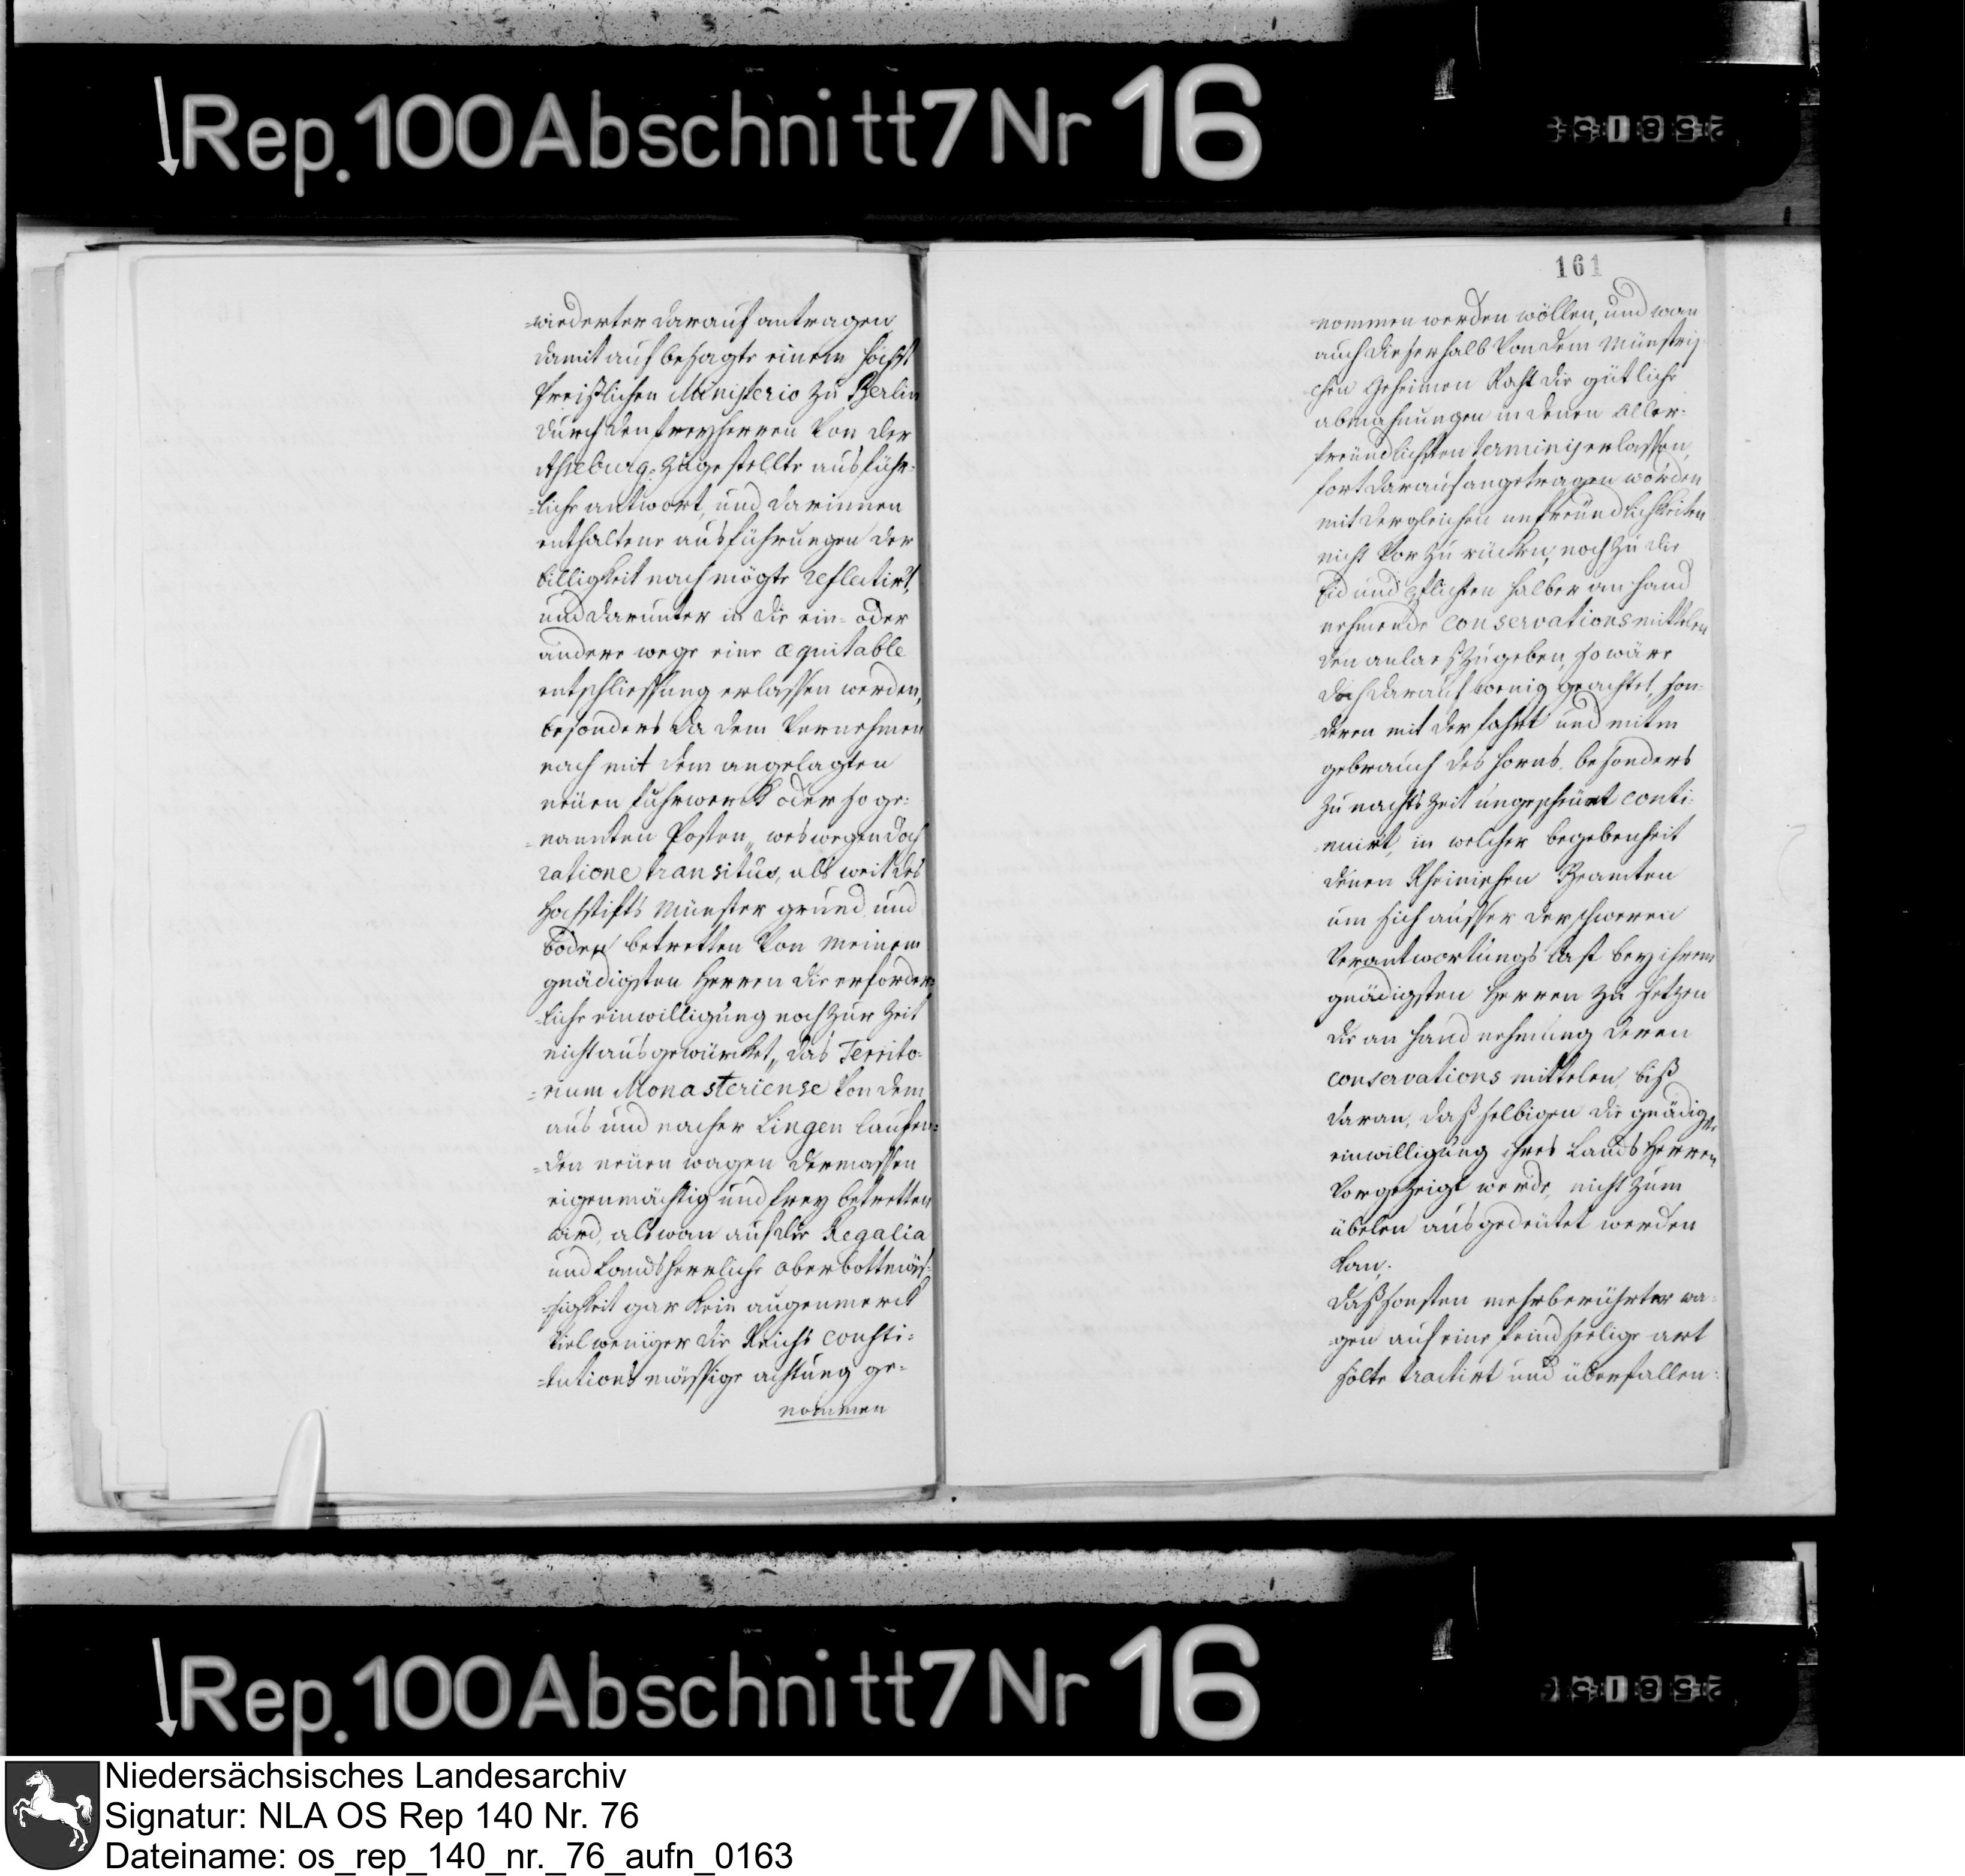 Rep. 100 Abschnitt 7 Nr 16
-wiederter darauf antragen
damit auf besagte einem höchst
preißlichen Ministerio zu Berlin
durch den freyherren von der
Asseburg zugestellte ausführ-
-liche antwort, und darinnen
enthaltene ausführungen der
billigkeit nach mögte reflectirt,
und darunter in die ein- oder
andere wege eine æquitable
entschliessung erlassen werden,
besonders da dem Vernehmen
nach mit dem angelagten
neüen fuhrwerck oder so ge-
-nannten Posten, weswegen doch
ratione transitus, als weit des
Hochstifts Münster grund und
boden betretten von meinem
gnädigsten Herren die erforder-
-liche einwilligung noch zur Zeit
nicht ausgewürcket, das Territo-
-rium Monasteriense von dem
aus und nacher Lingen laufen-
-den neüen wagen dermassen
eigenmächtig und frey betretten
wird, als wan auf die Regalia
und Landsherrliche oberbottmäs-
-sigkeit gar kein augenmerck
viel weniger die Reichs consti-
-tutions mässige achtung ge-
nommen
161
-nommen werden wöllen, und wan
auch dieserhalb von dem Münstri-
chen Geheimen Raht die gütliche
abmahnungen in denen aller-
freündlichsten terminis erlassen,
fort darauf angetragen worden
mit dergleichen unfreündlichkeiten
nicht vor zu rücken, noch zu die
Eid und Pflichten halber an hand
nehmende conservations mittelen
den anlaß zu geben, so wäre
doch darauf wenig geachtet, son-
-deren mit der fahrt und mitm
gebrauch des horns, besonders
zu nachts Zeit ungescheüet conti-
-nuirt, in welcher begebenheit
denen Rheinischen Beamten
um sich ausser der schweren
Verantwortungs last bey ihrem
gnädigsten Herren zu setzen
die an hand nehmung deren
conservations mittelen, biß
daran, daß selbigen die gnädigste
einwilligung ihres Lands Herren
vorgezeigt werde, nicht zum
übelen ausgedeütet werden
kan.
daß sonsten mehrberührter wa-
-gen auf eine feindseelige art
solte tractirt und überfallen-
Rep. 100 Abschnitt 7 Nr 16
Niedersächsisches Landesarchiv
Signatur: NLA OS Rep 140 Nr. 76
Dateiname: os_rep_140_nr._76_aufn_0163